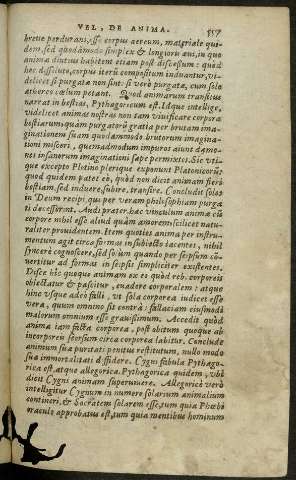 VEL, DE ANIMA. 557
brette perdurant, esse corpus aereum, materiale qui-
dem, sed quodāmodo simplex & longioris æui, in quo
anima diutius habitent etiam post discessum: quòd
hec dissolute, corpus iterū compositum induantur, vi-
delicet si purgatæ non sint: si verò purgatæ, cum solo
æthereo cælum petant. Quod animarum transitus
narrat in bestias, Pythagoricum est. Idque intellige,
videlicet animas nostras non tam viuificare corpora
bestiarum quàm purgatorū gratia per brutam ima-
ginationem suam quodammodo brutorum imagina-
tioni misceri, quemadmodum impuros aiunt dæmo-
nes insanorum imaginationi sæpe permixtos. Sic vti-
que excepto Plotino plerique exponunt Platonicorū,
quod quidem patet eò, quòd non dicit animam fieri
bestiam, sed induere, subire, transire. Concludit solos
in Deum recipi, qui per veram philosophiam purga
ti decesserint. Audi præter hæc vinculum animæ cū
corpore nihil esse aliud quàm amorem scilicet natu-
raliter prouidentem. Item quoties anima per instru-
mentum agit circa formas in subiecto iacentes, nihil
syncerè cognoscere, sed solùm quando per seipsum cō-
uertitur ad formas in seipsis simpliciter existentes.
Disce hîc quoque animam ex eo quòd reb. corporeis
oblectatur & pascitur, euadere corporalem: atque
hinc vsque adeò falli, vt sola corporea iudicet esse
vera, quum omnino sit contrà: fallaciam eiusmodi
malorum omnium esse grauissimum. Accedit quòd
anima iam facta corporea, post obitum quoque ab
incorporeu seorsum circa corporea labitur. Conclude
animum suæ puritati penitus restitutum, nullo modo
suæ immortalitati diffidere. Cygni fabula Pythago-
rica est atque allegorica. Pythagorica quidem, vbi
dicit Cygni animam superuiuere. Allegoricè verò
intelligitur Cygnum in numero solarium animalium
contineri, & Socratem solarem esse, tum quia Phœbi
oraculo approbatus est, tum quia mentibus hominum